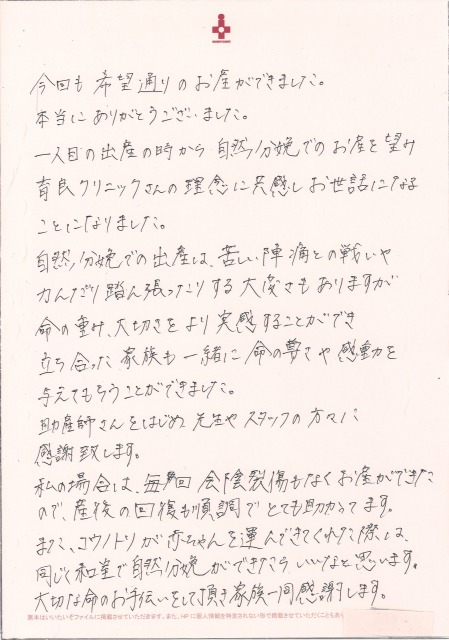 今回も 希望通りの お産ができました。
本当に ありがとうございました。
一人目の出産の時から 自然分娩での お産を望み
育良クリニックさんの理念に共感し お世話になる
ことになりました。
自然分娩での出産は、苦しい陣痛との戦いや
力んだり 踏ん張ったりする 大変さもありますが
命の重み、大切さを より 実感することができ
立ち合った 家族も 一緒に 命の尊さや 感動を
与えてもらうことができました。
助産師さんをはじめ 先生や スタッフの方々に
感謝致します。
私の場合は、毎回 会陰裂傷もなくお産ができた
ので、産後の回復も順調で とても助かってます。
また、コウノトリが赤ちゃんを運んできてくれた際は、
同じく和室で自然分娩ができたら いいなと思います。
大切な命のお手伝いをして頂き家族一同感謝します。
用末はいいたいそファイルに掲載させていただきます。また、HPに個人情報を特定されない形で掲載させていただくこともあり